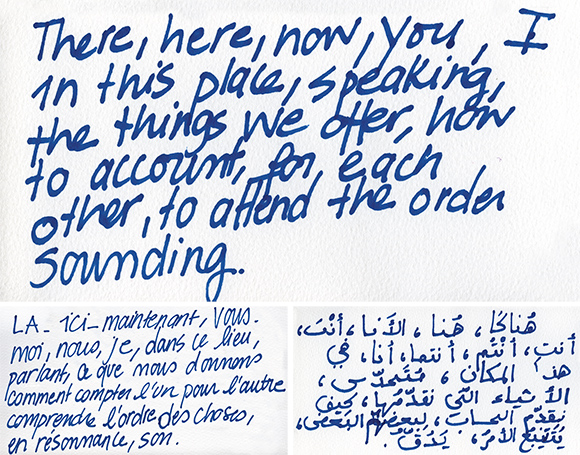 There, here, now, you, I
In this place, speaking,
the things we offer, how
to account, for each
other, to attend the order
sounding.
LA - ici - maintenant, vous -
moi, nous, je, dans ce lieu,
parlant, ce que nous donnons
comment compter l'un pour l'autre
comprendre l'ordre des choses,
en résonnance, son.
هُناكَا، هُنا، الأَنا، أَنْتَ،
أنتِ، أَنْتُم، أنتما، أنا، في
هذا المكان، مُتَحدِّس،
الأشياء التي نقدّمها، كيف
نقدّم الحساب، لبعضهم البعض،
الأمرُ، يَدُقّ.